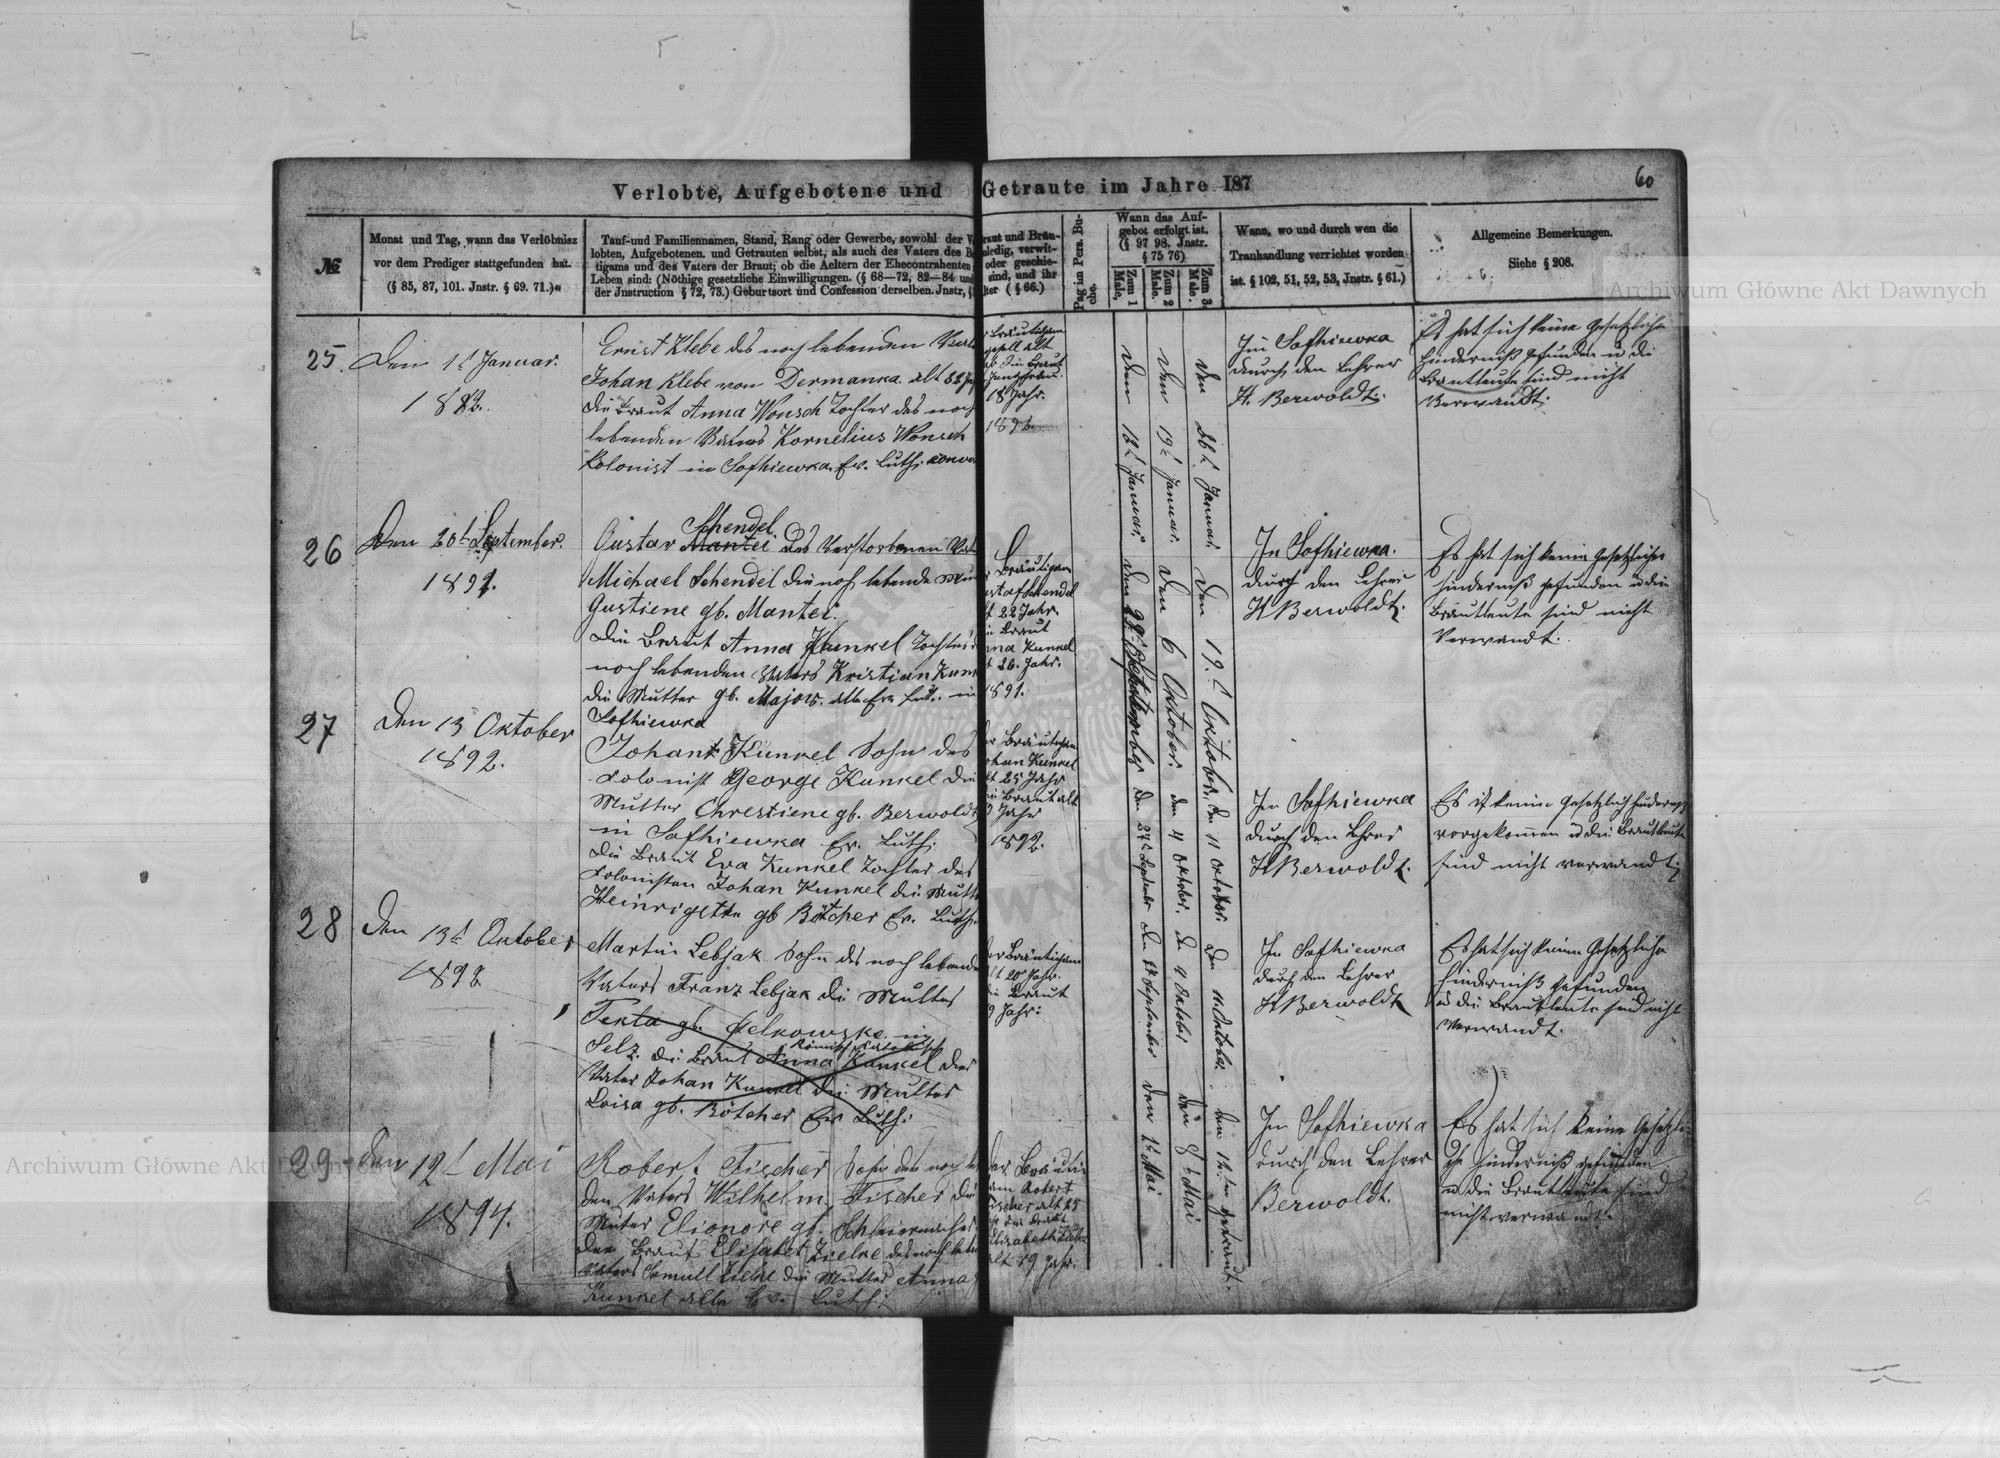 Verlobte, Aufgebotene und Getraute im Jahre 187
60
№
Monat und Tag, wann das Verlöbnisz
vor dem Prediger stattgefunden hat.
(§ 85, 87, 101. Jnstr. § 69. 71.)
Tauf-und Familiennamen, Stand, Rang oder Gewerbe, sowohl der
lobten, Aufgebotenen. und Getrauten selbst, als auch des Vaters des
tigams und des Vaters der Braut; ob die Aeltern der Ehecontrahenten
Leben sind: (Nöthige gesetzliche Einwilligungen. (§ 68—72, 82—84 und
der Jnstruction § 72, 73.) Geburtsort und Confession derselben. Jnstr,
raut und Bräu-
ledig, verwit-
oder geschie-
sind, und ihr
lter ( § 66.)
Pag im Pers. Bu-
che.
Wann das Auf-
gebot erfolgt ist.
(§ 97 98. Jnstr.
§ 75 76)
Zum 1 Male,
Zum 2 Male.
Zum 3. Male.
Wann, wo und durch wen die
Trauhandlung verrichtet worden
ist. § 102, 51, 52, 53, Jnstr. § 61.)
Allgemeine Bemerkungen.
Siehe § 208.
25.
Den 1t Januar.
Ernst Klebe des noch lebenden
Johan Klebe von Dermanka alt
die Braut Anna Wonsch Tochter des noch
lebenden Vaters Kornelius Wonsch
Kolonist in Sofhiewka Ev. Luth.
Bräutigam
Braut
18 Jahr.
den 12t Januar
den 19t Januar
den 26t Januar
In Sofhiewka
durch den Lehrer
H. Berwoldt.
Es hat sich keine Gesetzliche
Hinderniß gefunden u die
Brautleute sind nicht
Verwandt.
26
Den 20t September.
Schendel
Gustav Mantei des Verstorbenen
Michael Schendel die noch lebende
Gustiene gb. Mantei.
Die Braut Anna Kunkel Tochter
noch lebenden Vaters Kristian
die Mutter gb. Majors. alle Ev. Lut. in
Sofhiewka
Bräutigam
22 Jahr
Braut
Kunkel
20. Jahr.
1891.
den 29t September
den 6 October.
den 19t October.
In Sofhiewka.
durch den Lehrer
H Berwoldt.
Es hat sich keine Gesetzliche
Hinderniß gefunden u die
Brautleute sind nicht
Verwandt.
27
Den 13 Oktober
1892.
Johan Kunkel Sohn des
Kolonist George Kunkel die
Mutter Chrestiene gb. Berwoldt
in Sofhiewka Ev. Luth.
Die Braut Eva Kunkel Tochter des
Kolonisten Johan Kunkel die Mutter
Heinrigette gb Bötcher Ev. Luth.
Bräutigam
Johan Kunkel
25 Jahr
Braut alt
Jahr
1892.
den 27t September
den 4 Oktober.
den 11 Oktober.
In Sofhiewka
durch den Lehrer
H Berwoldt.
Es ist keine Gesetzlich
vorgekommen u die Brautleute
sind nicht verwandt.
28
Den 13t October
1892
Martin Lebjak Sohn des noch lebenden
Vaters Franz Lebjak die Mutter
gb.
Römisch Katolisch
Selz. die Braut Anna Kunkel der
Vater Johan Kunkel die Mutter
Loisa gb. Bötcher Ev Luth.
der Bräutigam
alt 20 Jahr.
die Braut
Jahr.
In Sofhiewka
durch den Lehrer
H Berwoldt
Es hat sich keine Gesetzliche
Hinderniß gefunden
u die Brautleute sind nicht
Verwandt.
29
den 12t Mai
1894.
Robert Fischer Sohn des noch
den Vaters Wilhelm Fischer die
Muter Elionore gb. Schleiermacher
Den Braut Elisabet Zielke des noch
Vaters Samuel Zielke die Mutter Anna
Kunkel alle Ev. Luth.
der Bräuti-
gam Robert
Fischer alt 25
Elizabeth Zielke
alt 19 Jahr.
den 1t Mai
den 8t Mai
getraut.
In Sofhiewka
durch den Lehrer
Berwoldt.
Es hat sich keine Gesetzli-
che Hinderniß gefunden
u die Brautleute sind
nicht verwandt.
Archiwum Główne Akt Dawnych
Archiwum Główne Akt Dawnych